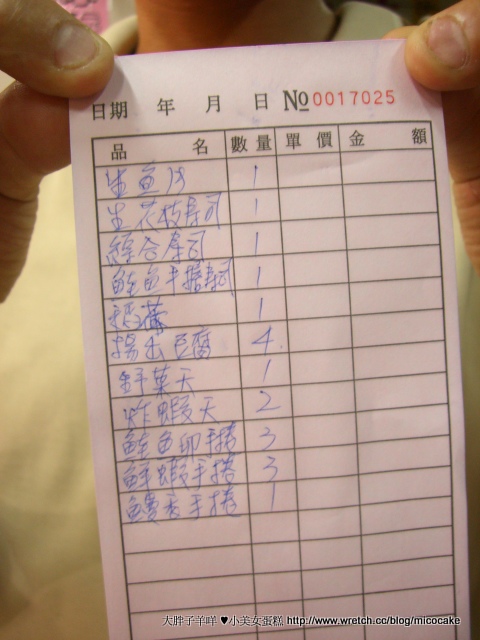 日期 年 月 日 №0017025
品名 數量 單價 金額
生魚片 1
生花枝壽司 1
綜合壽司 1
鮭魚手捲壽司 1
1
揚出豆腐 4
野菜天 1
炸蝦天 2
鮭魚卵手捲 3
鮮蝦手捲 3
鰻魚手捲 1
大胖子羊咩♥小美女蛋糕 http://www.wretch.cc/blog/micocake